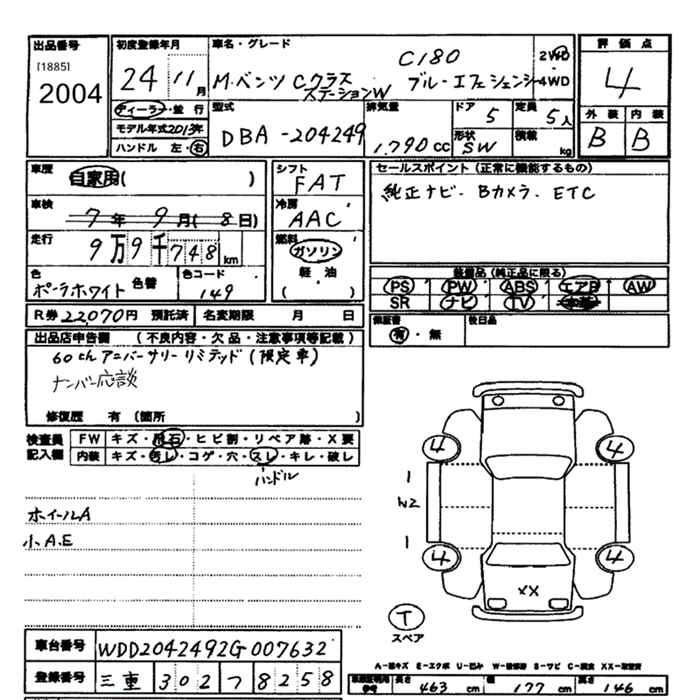 出品番号
[1885]
2004
初度登録年月
24 11月
車名・グレード
C180
M.ベンツ Cクラス ブルーエフィシェンシー
ステーションW
2WD
4WD
評価点
4
外装 内装
B B
ディーラー・並行
モデル年式2013年
ハンドル 左・右
型式
DBA-204249
排気量
1,790 CC
ドア 5
形状 SW
定員 5人
積載 kg
車歴
自家用( )
車検
7年9月(8日)
走行
9万9千748km
色
ポーラホワイト 色替
色コード
149
シフト
FAT
冷房
AAC
燃料
ガソリン
軽・油
( )
セールスポイント(正常に機能するもの)
純正ナビ. Bカメラ. ETC
装備品(純正品に限る)
PS PW ABS エアB AW
SR ナビ TV 本革
R券 22,070円 預託済 名変期限 月 日
保証書 有・無
後日品
出品店申告欄 (不良内容・欠品・注意事項等記載)
60th アニバーサリーリミテッド(限定車)
ナンバー応談
修復歴 有 (箇所 )
検査員
記入欄
FW キズ・飛石・ヒビ割・リペア跡・X要
内装 キズ・汚レ・コゲ・穴・スレ・キレ・破レ
ハンドル
ホイールA
小A.E
4 4
1
W2
1
4 4
XX
T
スペア
車台番号 WDD2042492G007632
登録番号 三重 302 フ 8258
A-線キズ E-エクボ U-凹み W-補修跡 S-サビ C-腐食 XX-取替済
車検証明書
参考
長さ 463 cm 幅 177 cm 高さ 146 cm